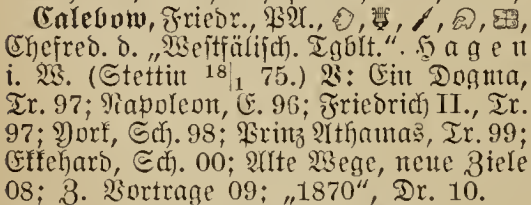 Calebow, Friedr., PA.,
Chefred. d. „Westfälisch. Tgblt.“. Hagen
i. W. (Stettin 18|1 75.) V: Ein Dogma,
Tr. 97; Napoleon, E. 96; Friedrich II., Tr.
97; York, Sch. 98; Prinz Athamas, Tr. 99;
Ekkehard, Sch. 00; Alte Wege, neue Ziele
08; Z. Vortrage 09; „1870“, Dr. 10.